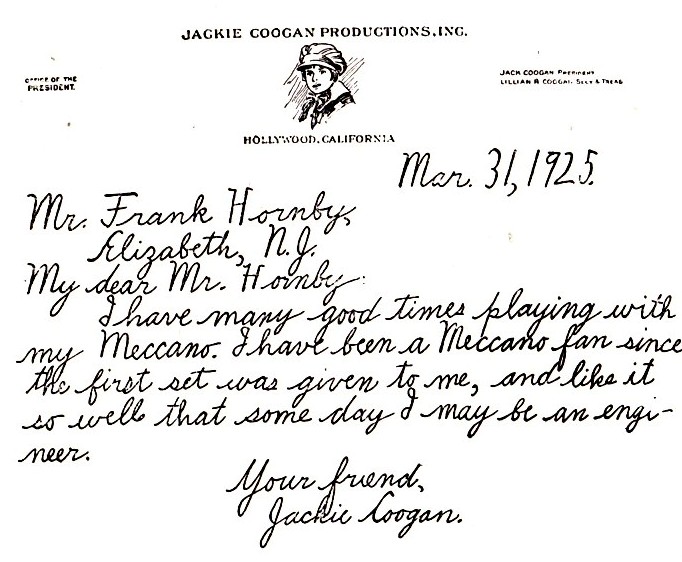 JACKIE COOGAN PRODUCTIONS, INC.
OFFICE OF THE
PRESIDENT.
JACK COOGAN PRESIDENT
LILLIAN R COOGAN. SECY & TREAS
HOLLYWOOD, CALIFORNIA
Mar. 31, 1925.
Mr. Frank Hornby,
Elizabeth, N.J.
My dear Mr. Hornby:
I have many good times playing with
my Meccano. I have been a Meccano fan since
the first set was given to me, and like it
so well that some day I may be an engi-
neer.
Your friend,
Jackie Coogan.